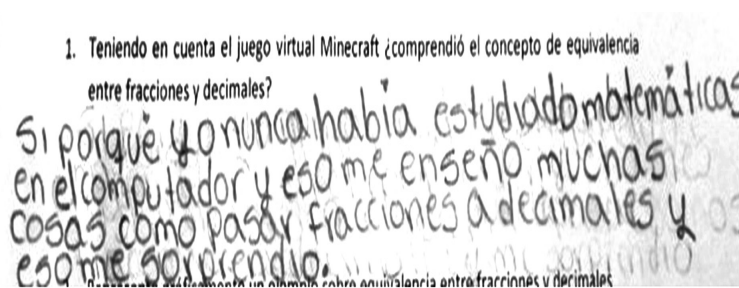 1. Teniendo en cuenta el juego virtual Minecraft ¿comprendió el concepto de equivalencia
entre fracciones y decimales?
Si porqué yo nunca había estudiado matemáticas
en el computador y eso me enseño muchas
cosas como pasar fracciones a decimales y
eso me sorprendio.
un ejemplo sobre equivalencia entre fracciones y decimales